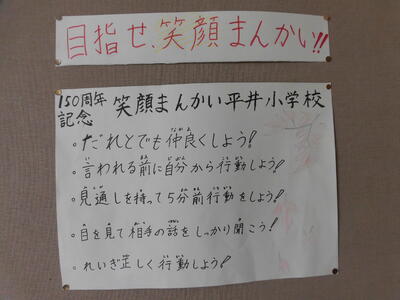 目指せ、笑顔まんかい!!
150周年記念 笑顔まんかい平井小学校
。だれとでも仲良くしよう!
。言われる前に自分から行動しよう!
。見通しを持って5分前行動をしよう!
。目を見て相手の話をしっかり聞こう!
。れいぎ正しく行動しよう!